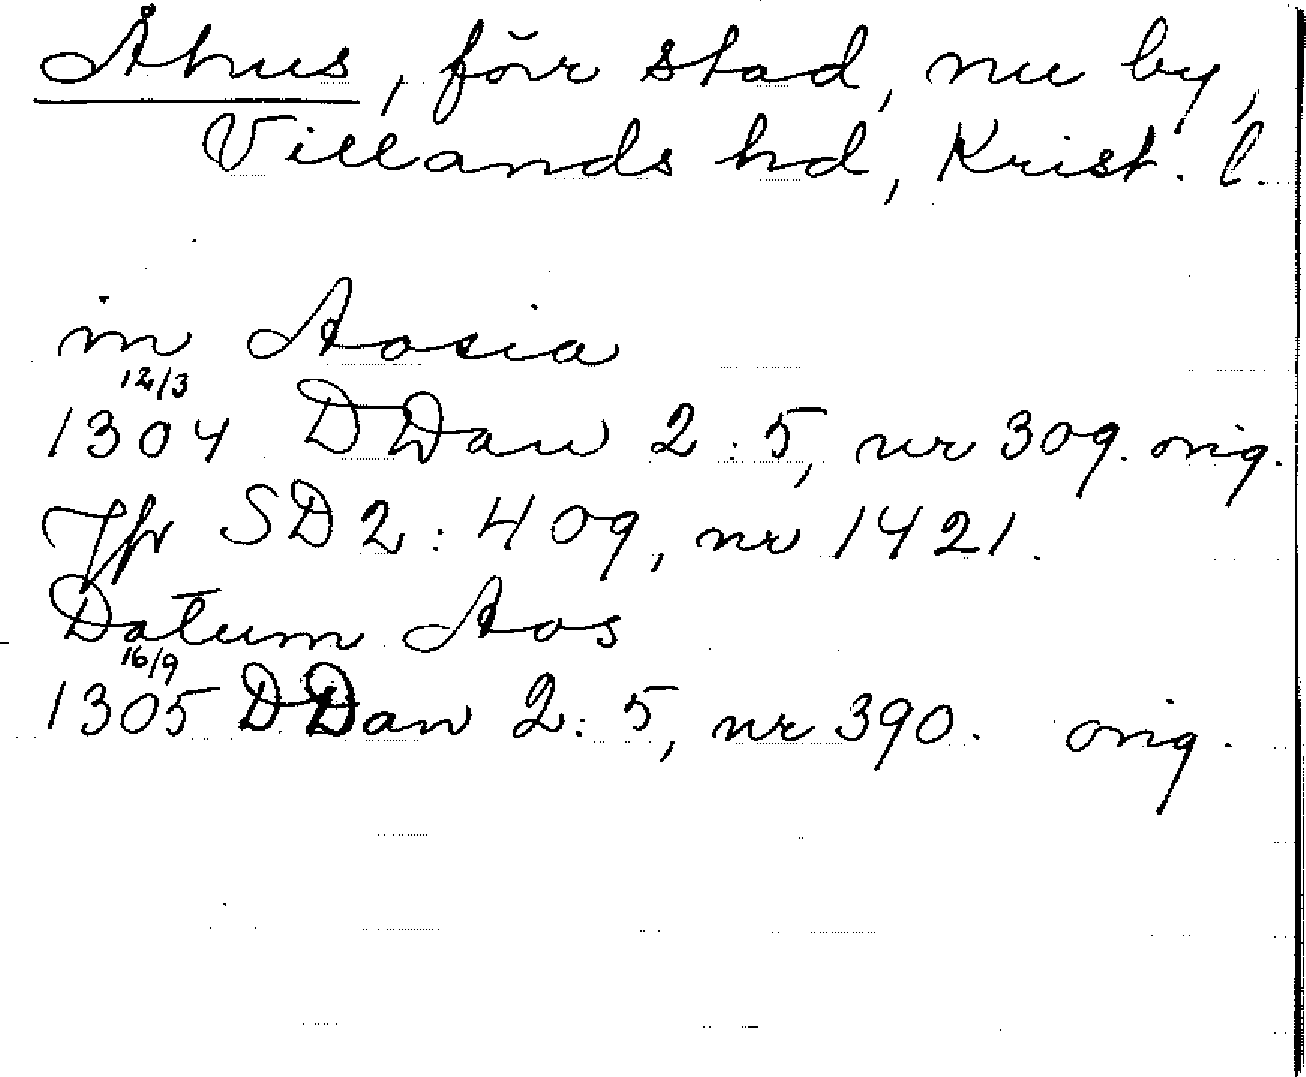 Åhus, förr stad, nu by,
Villands hd, Krist. l.
in Aosia
12/3
1304 DDan 2:5, nr 309. orig.
Jfr SD 2:409, nr 1421.
Datum Aos
16/9
1305 DDan 2:5, nr 390. orig.